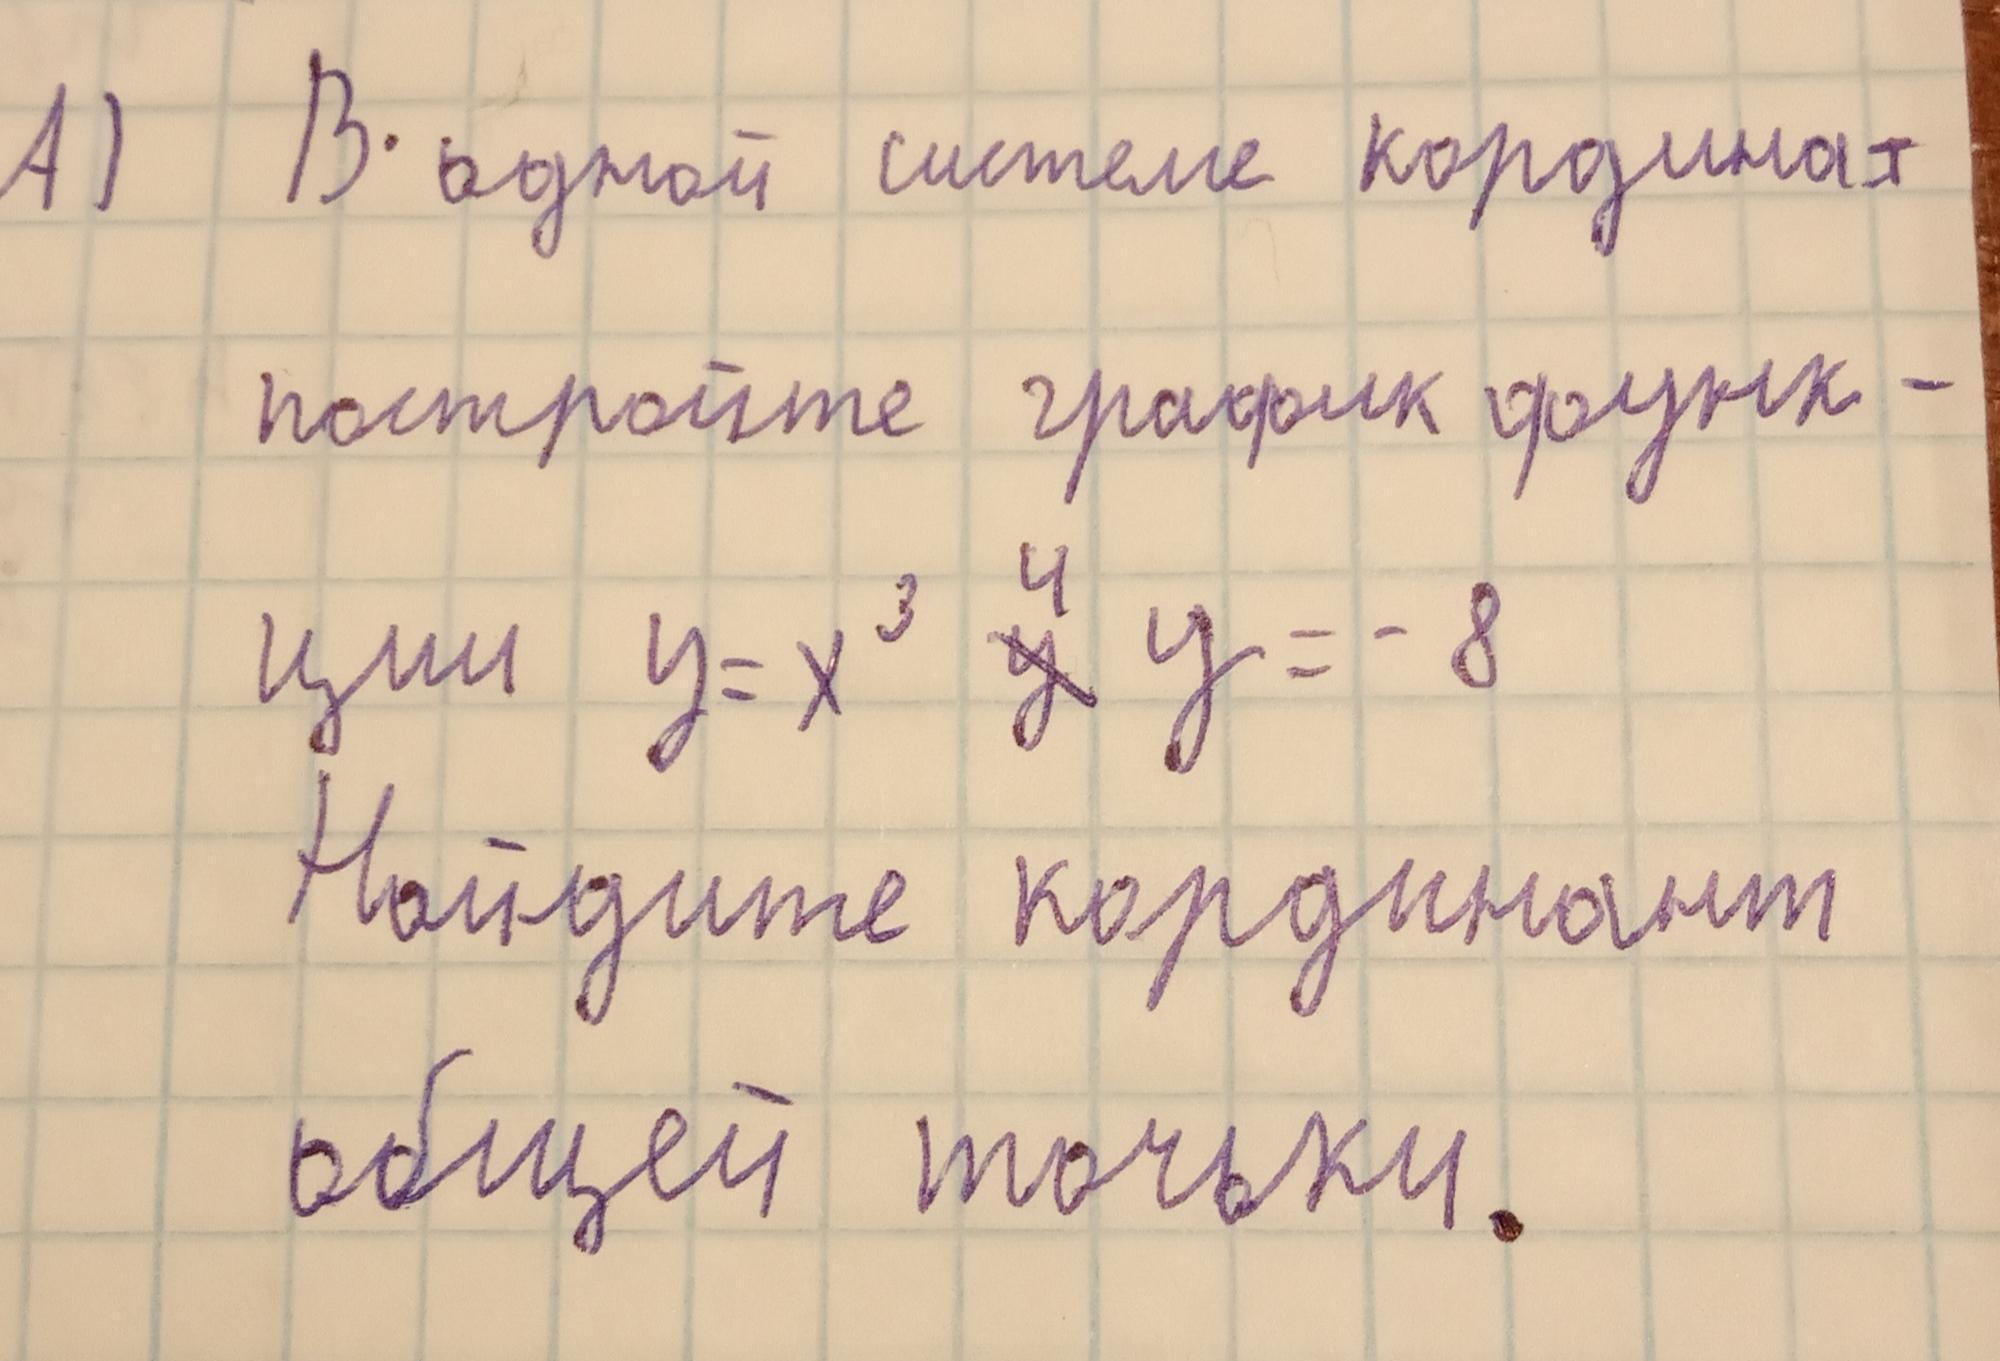 А) В одной системе кординат
постройте график функ-
ции y=x³ и y=-8
Найдите кординант
общей точьки.